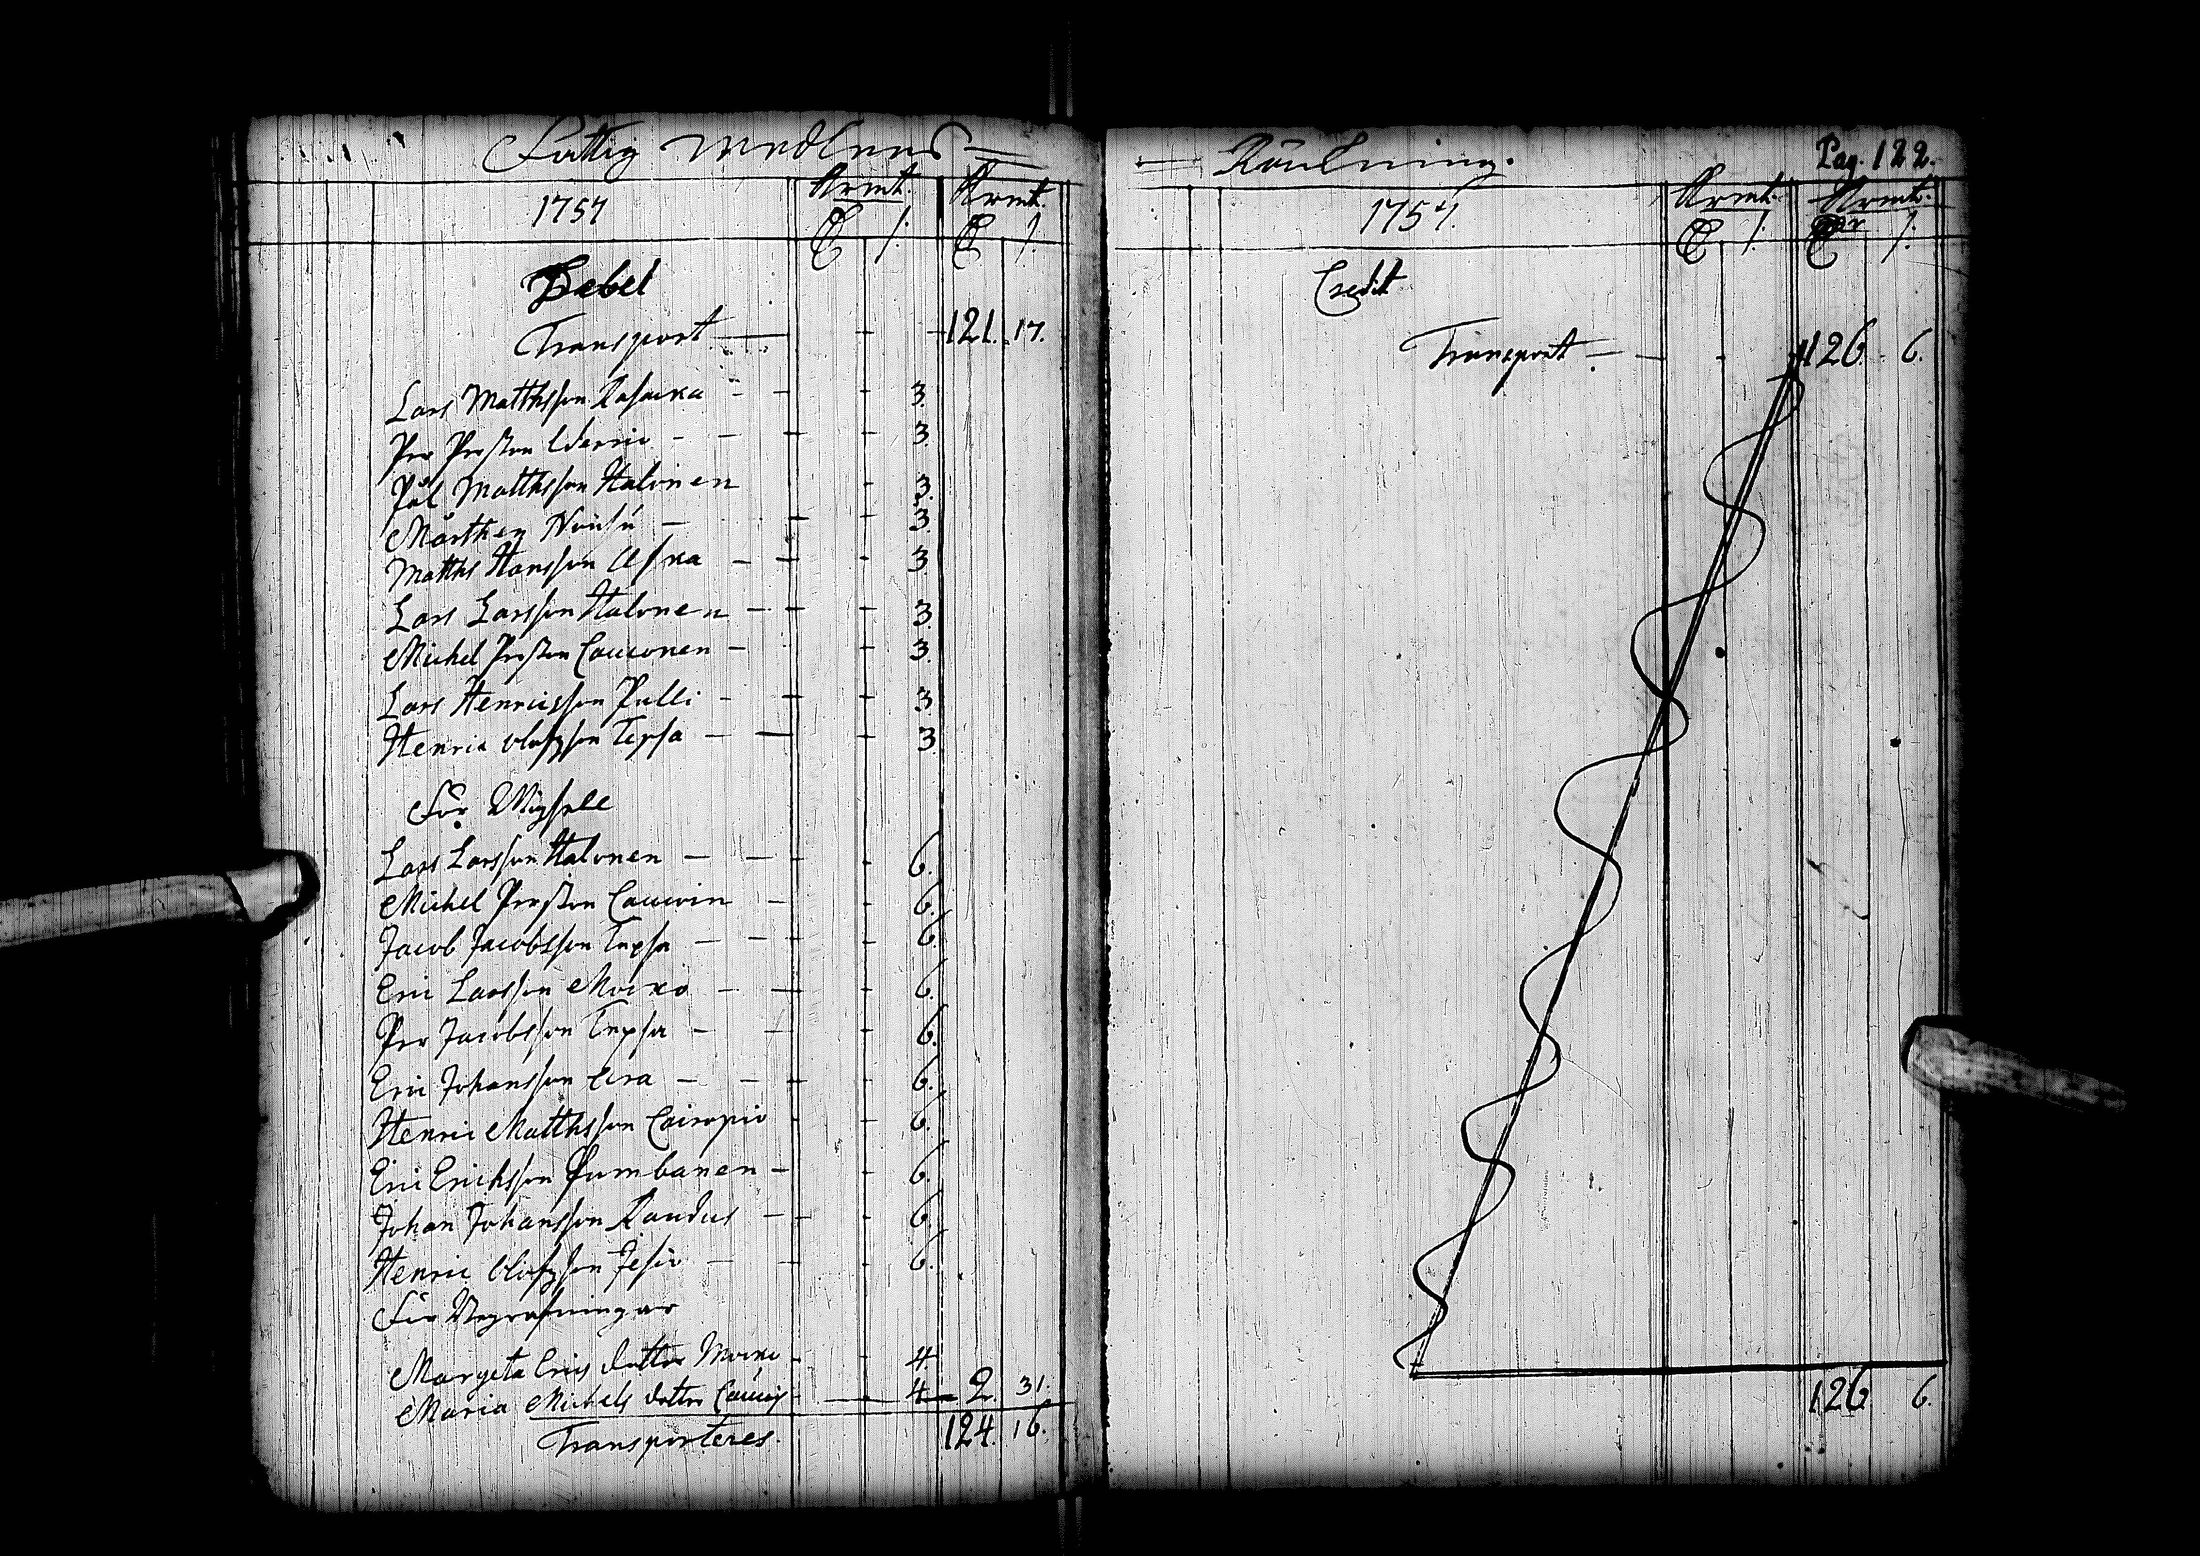 Fattig Medlens
1757
Krmt. Krmt.
Debet
Transport 121. 17.
Lars Matthsson Rasacka 3.
Per Persson 3.
Pål Matthsson Halonen 3.
Mårthen 3.
Matths Hansson Aska 3.
Lars Larsson Halonen 3.
Michel Persson Cauconen 3.
Lars Henricsson Pulli 3
Henric Olofsson Tepsa 3.
För Wigsell
Lars Larsson Halonen 6.
Michel Persson 6.
Jacob Jacobsson Tepsa 6
Eric Larsson Mocko 6.
Per Jacobsson Tepsa 6.
Eric Johansson 6.
Henric Matthsson Cairopio 6.
Eric Erichsson Pumbanen 6.
Johan Johansson Randus 6.
Henric Olofsson Jesiö 6.
För Begrafningar
Margeta Erics dotter 4.
Maria Michels dotter 4 2. 31.
Transporteres. 124. 16.
Räckning.
Pag. 122.
1757.
Krmt. Krmt.
Credit
Transport 126. 6.
126 6.